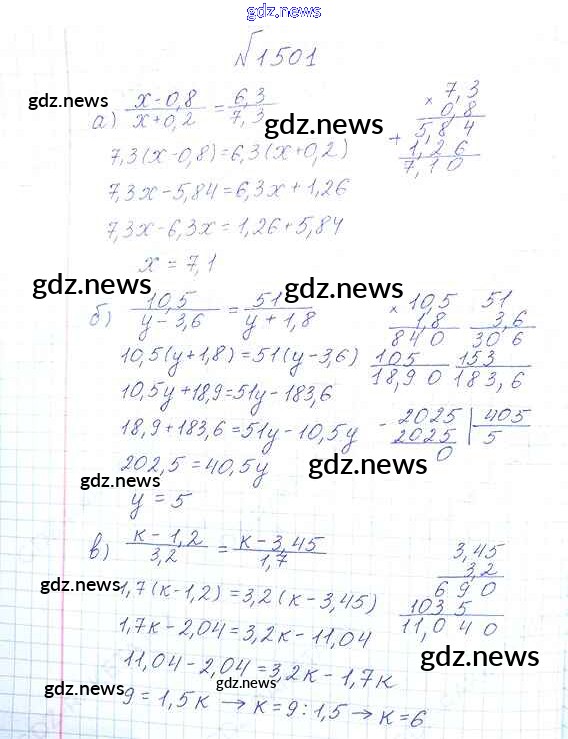 gdz.news
№1501
а) x-0,8 / x+0,2 = 6,3 / 7,3
7,3(x-0,8)=6,3(x+0,2)
7,3x-5,84=6,3x+1,26
7,3x-6,3x=1,26+5,84
x = 7,1
× 7,3
0,8
5,84
+ 1,26
7,10
gdz.news
gdz.news
gdz.news
gdz.news
б) 10,5 / y-3,6 = 51 / y+1,8
10,5(y+1,8)=51(y-3,6)
10,5y+18,9=51y-183,6
18,9+183,6=51y-10,5y
202,5=40,5y
y = 5
× 10,5
1,8
840
105
18,90
51
3,6
306
153
183,6
- 2025 | 405
2025 | 5
0
gdz.news
gdz.news
в) к-1,2 / 3,2 = к-3,45 / 1,7
1,7(к-1,2)=3,2(к-3,45)
1,7к-2,04=3,2к-11,04
11,04-2,04=3,2к-1,7к
9=1,5к → к=9:1,5 → к=6
3,45
3,2
690
1035
11,040
gdz.news
gdz.news
gdz.news
gdz.news